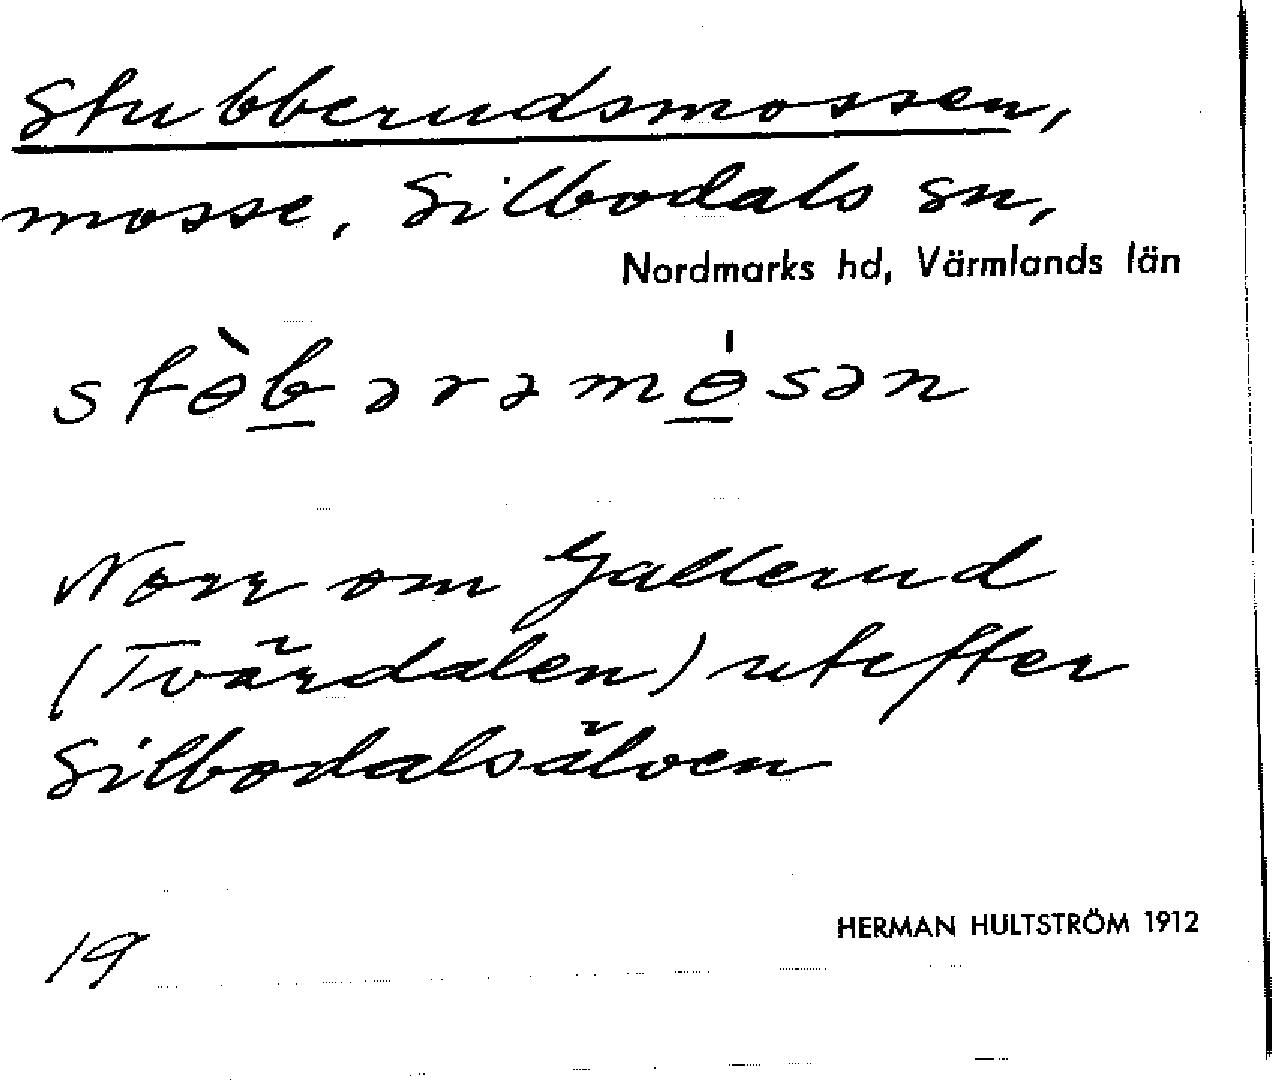 Stubberudsmossen,
mosse, Silbodals sn,
Nordmarks hd, Värmlands län
stɵ̀bərəmɵ́sən
Norr om Gallerud
(Tvärdalen) utefter
Silbodalsälven
HERMAN HULTSTRÖM 1912
19